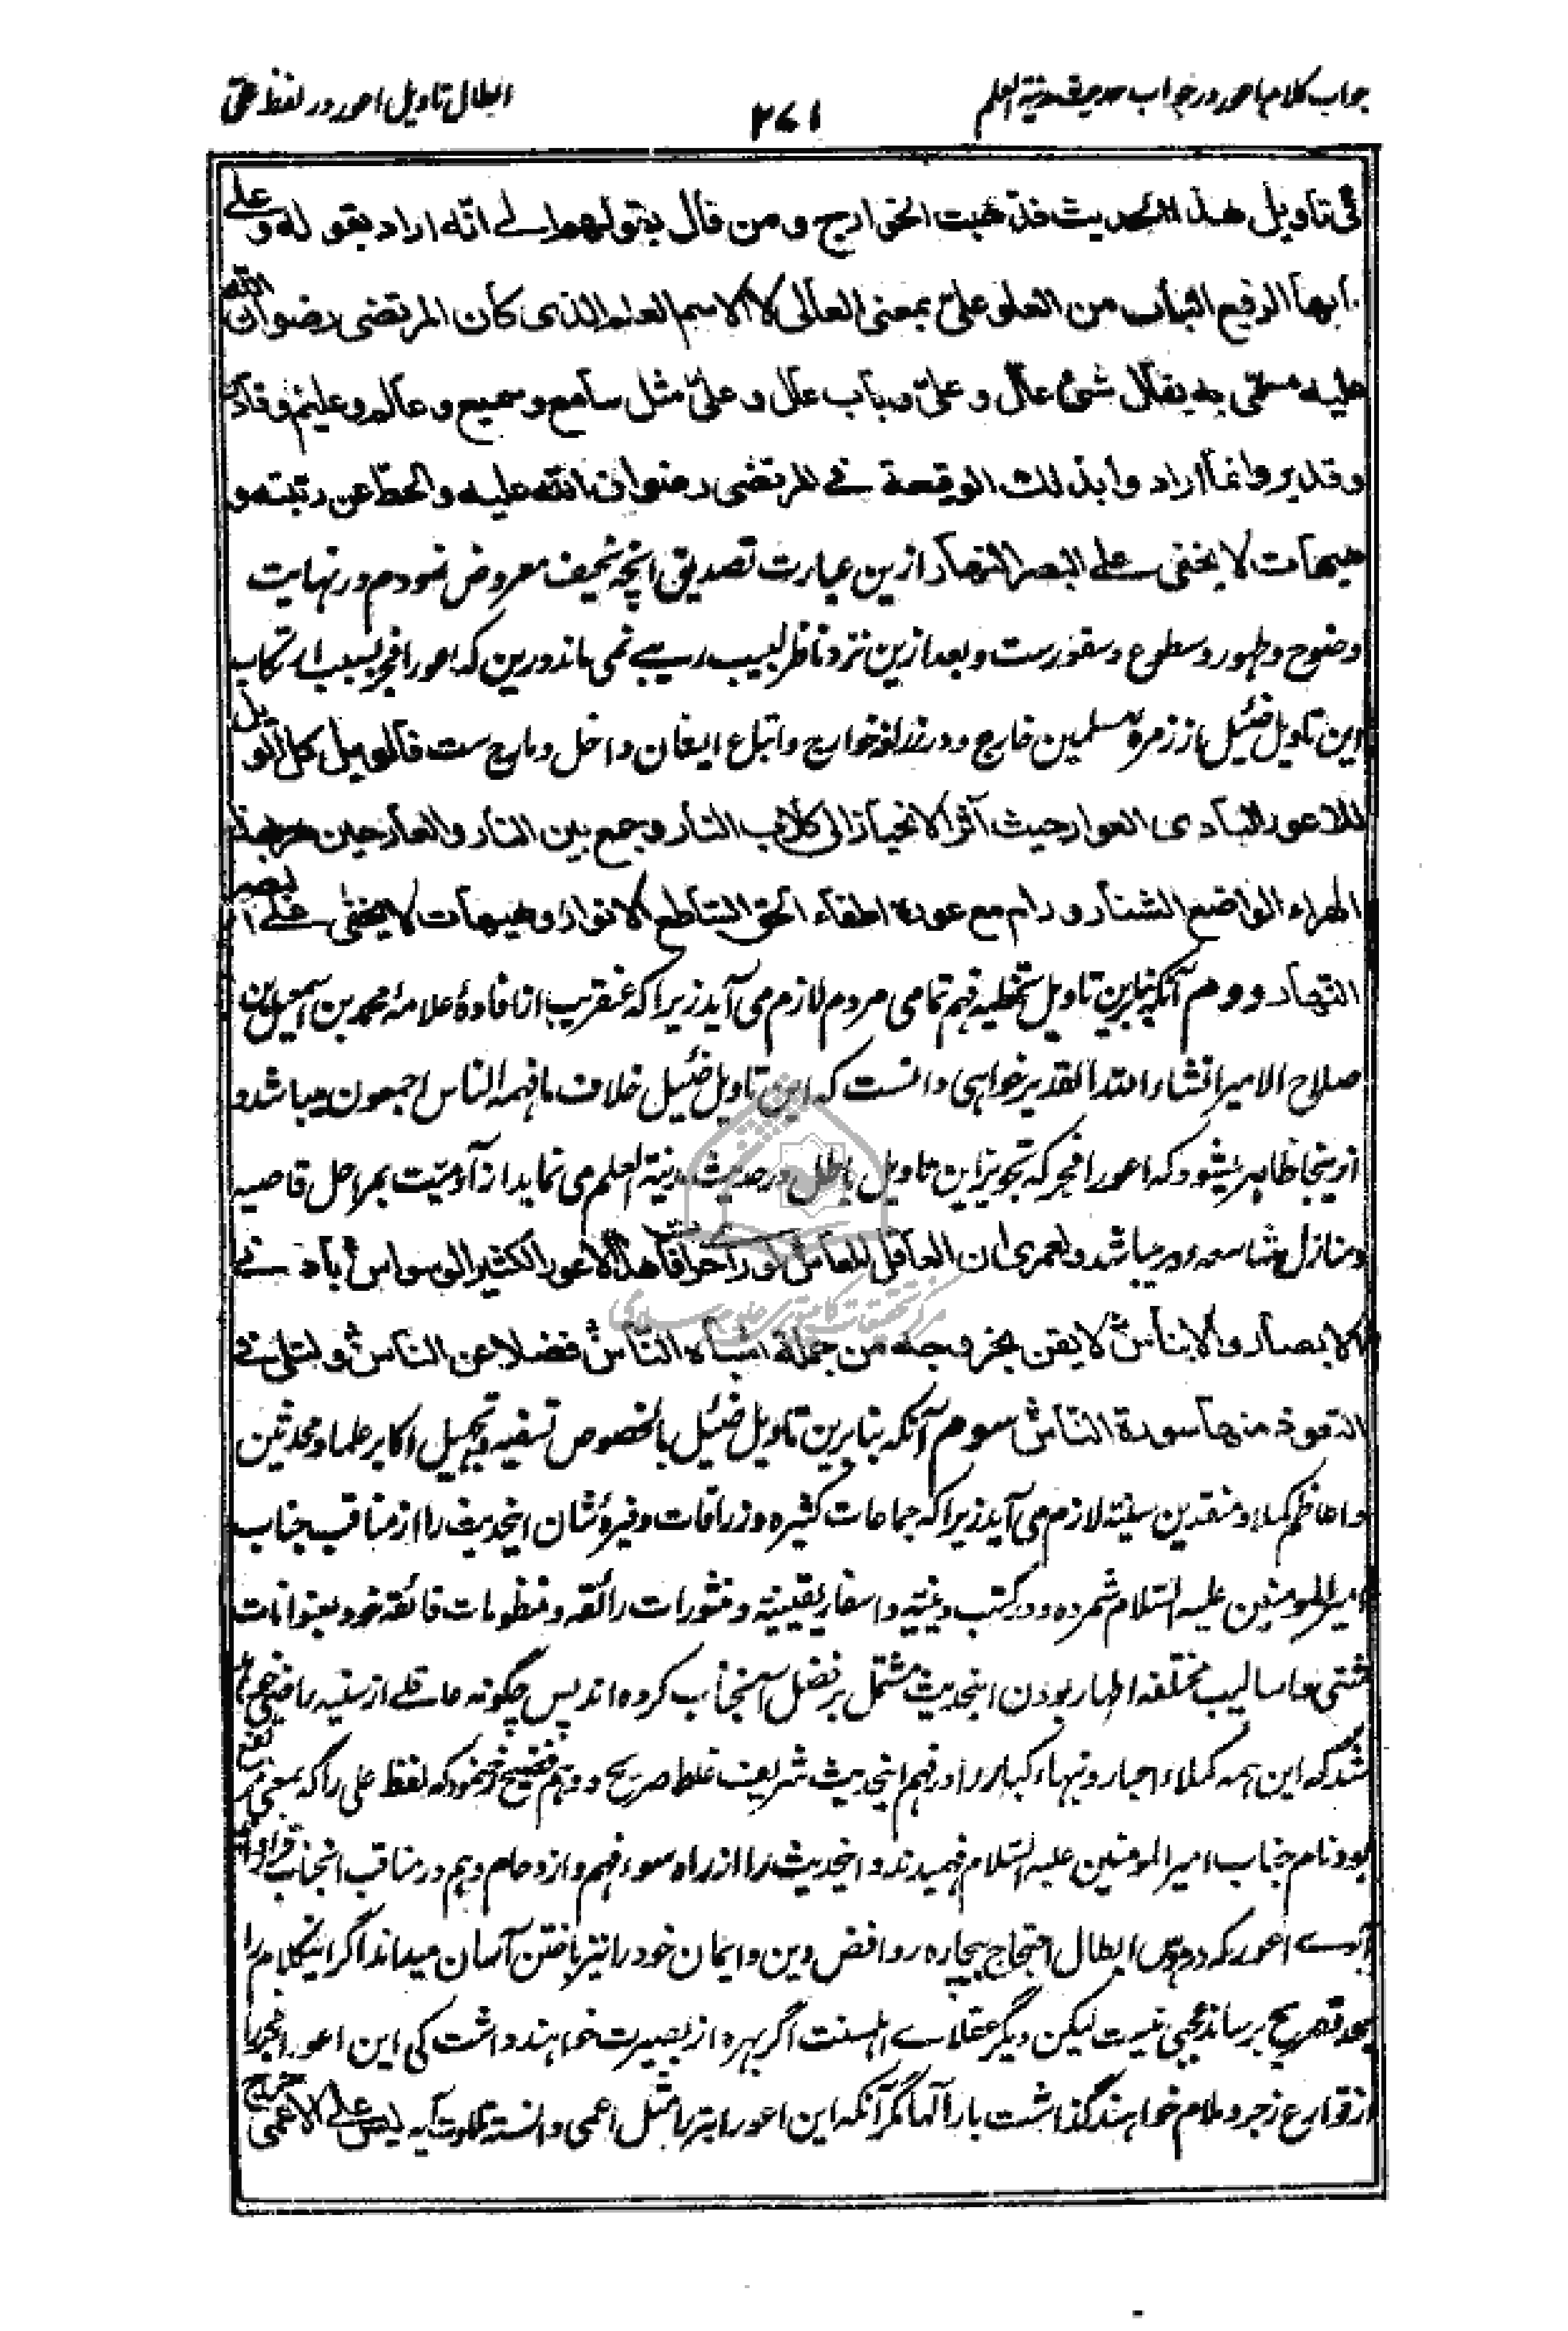 جواب کلام اعور در جواب حدیث مدینة العلم
۲۷۱
ابطال تاویل اعور در لفظ علی
فی تاویل هذا الحدیث فذهبت الخوارج و من قال بقولهم الے انّه اراد بقوله و علے
بابها الرفیع الباب من العلو علیّ بمعنی العالی لا الاسم العلم الذی کان المرتضی رضوان الله
علیه مسمّی به یقال شیٔ عالٍ و علیّ و باب عال و علیّ مثل سامع و سمیع و عالم و علیم و قادر
و قدیر و انما ارادوا بذلک الوقیعة فے المرتضی رضوان الله علیه و الحط عن رتبته و
هیهات لا یخفی علے البصر النهار ازین عبارت تصدیق انچه نحیف معروض نمودم در نهایت
وضوح و ظهور و سطوع و سفورست و بعد ازین نزد ناظر لبیب ریبے نمی ماند درین که اعور افجر بسبب ارتکاب
این تاویل ضئیل از زمرهٔ مسلمین خارج و در زرافهٔ خوارج و اتباع ایفان داخل و مارج ست فالویل کل الویل
للاعور البادی العوار حیث آثر الانحیاز الی کلاب النار و جمع بین النار و العار حین
الهراء الواضع الشنار و رام مع عوره اطفاء الحق الساطع الانوار و هیهات لا یخفی علے البصر
النهار دوم آنکه بنابرین تاویل تخطیه فهم تمامی مردم لازم می آید زیرا که عنقریب از افادهٔ علامه محمد بن اسمعیل بن
صلاح الامیر انشاء الله القدیر خواهی دانست که این تاویل ضئیل خلاف ما فهمه الناس اجمعون میباشد و
ازینجا ظاهر میشود که اعور افجر که تجویز این تاویل باطل در حدیث مدینة العلم می نماید از آدمیّت بمراحل قاصیه
و منازل شاسعه دور میباشد و لعمری ان العاقل لو رای هذا الاعور الکثیر الوسواس باد فے
الابصار و الایناس لایقن بخروجه من جملة اشباه الناس فضلا عن الناس و لتلی فے
التعوذ منها سورة الناس سوم آنکه بنابرین تاویل ضئیل بالخصوص تسفیه و تجهیل اکابر علما و محدثین
و اعاظم کملا و منقدین سنیّه لازم می آید زیرا که جماعات کثیره و زرافات وفیره شان اینحدیث را از مناقب جناب
امیر المومنین علیه السّلام شمرده و در کتب دینیّه و اسفار یقینیّه و منثورات رائقه و منظومات فائقه خود بعنوانات
شتی و اسالیب مختلفه اظهار بودن اینحدیث مشتمل بر فضل آنجناب کرده اند پس چگونه عاقلے از سنیه راضی
شد که این همه کملاء احبار و نبهاء کبار را در فهم اینحدیث شریف غلط صریح و وهم فضیح رخ نمود که لفظ علی را که بمعنی مرتفع
بود نام جناب امیر المومنین علیه السّلام فهمیدند و اینحدیث را از راه سوء فهم و ازدحام وهم در مناقب انجناب
آرے اعور که در هوس ابطال احتجاج بیچاره روافض دین و ایمان خود را نیز باختن آسان میداند اگر اینکلام را
بحد تصریح برساند عجبی نیست لیکن دیگر عقلاے اهلسنت اگر بهره از بصیرت خواهند داشت کی این اعور افجر را
از قوارع زجر و ملام خواهند گذاشت بار الها مگر آنکه این اعور ابتر را مثل اعمی دانسته تلاوت آیه لیس علے الاعمی حرج